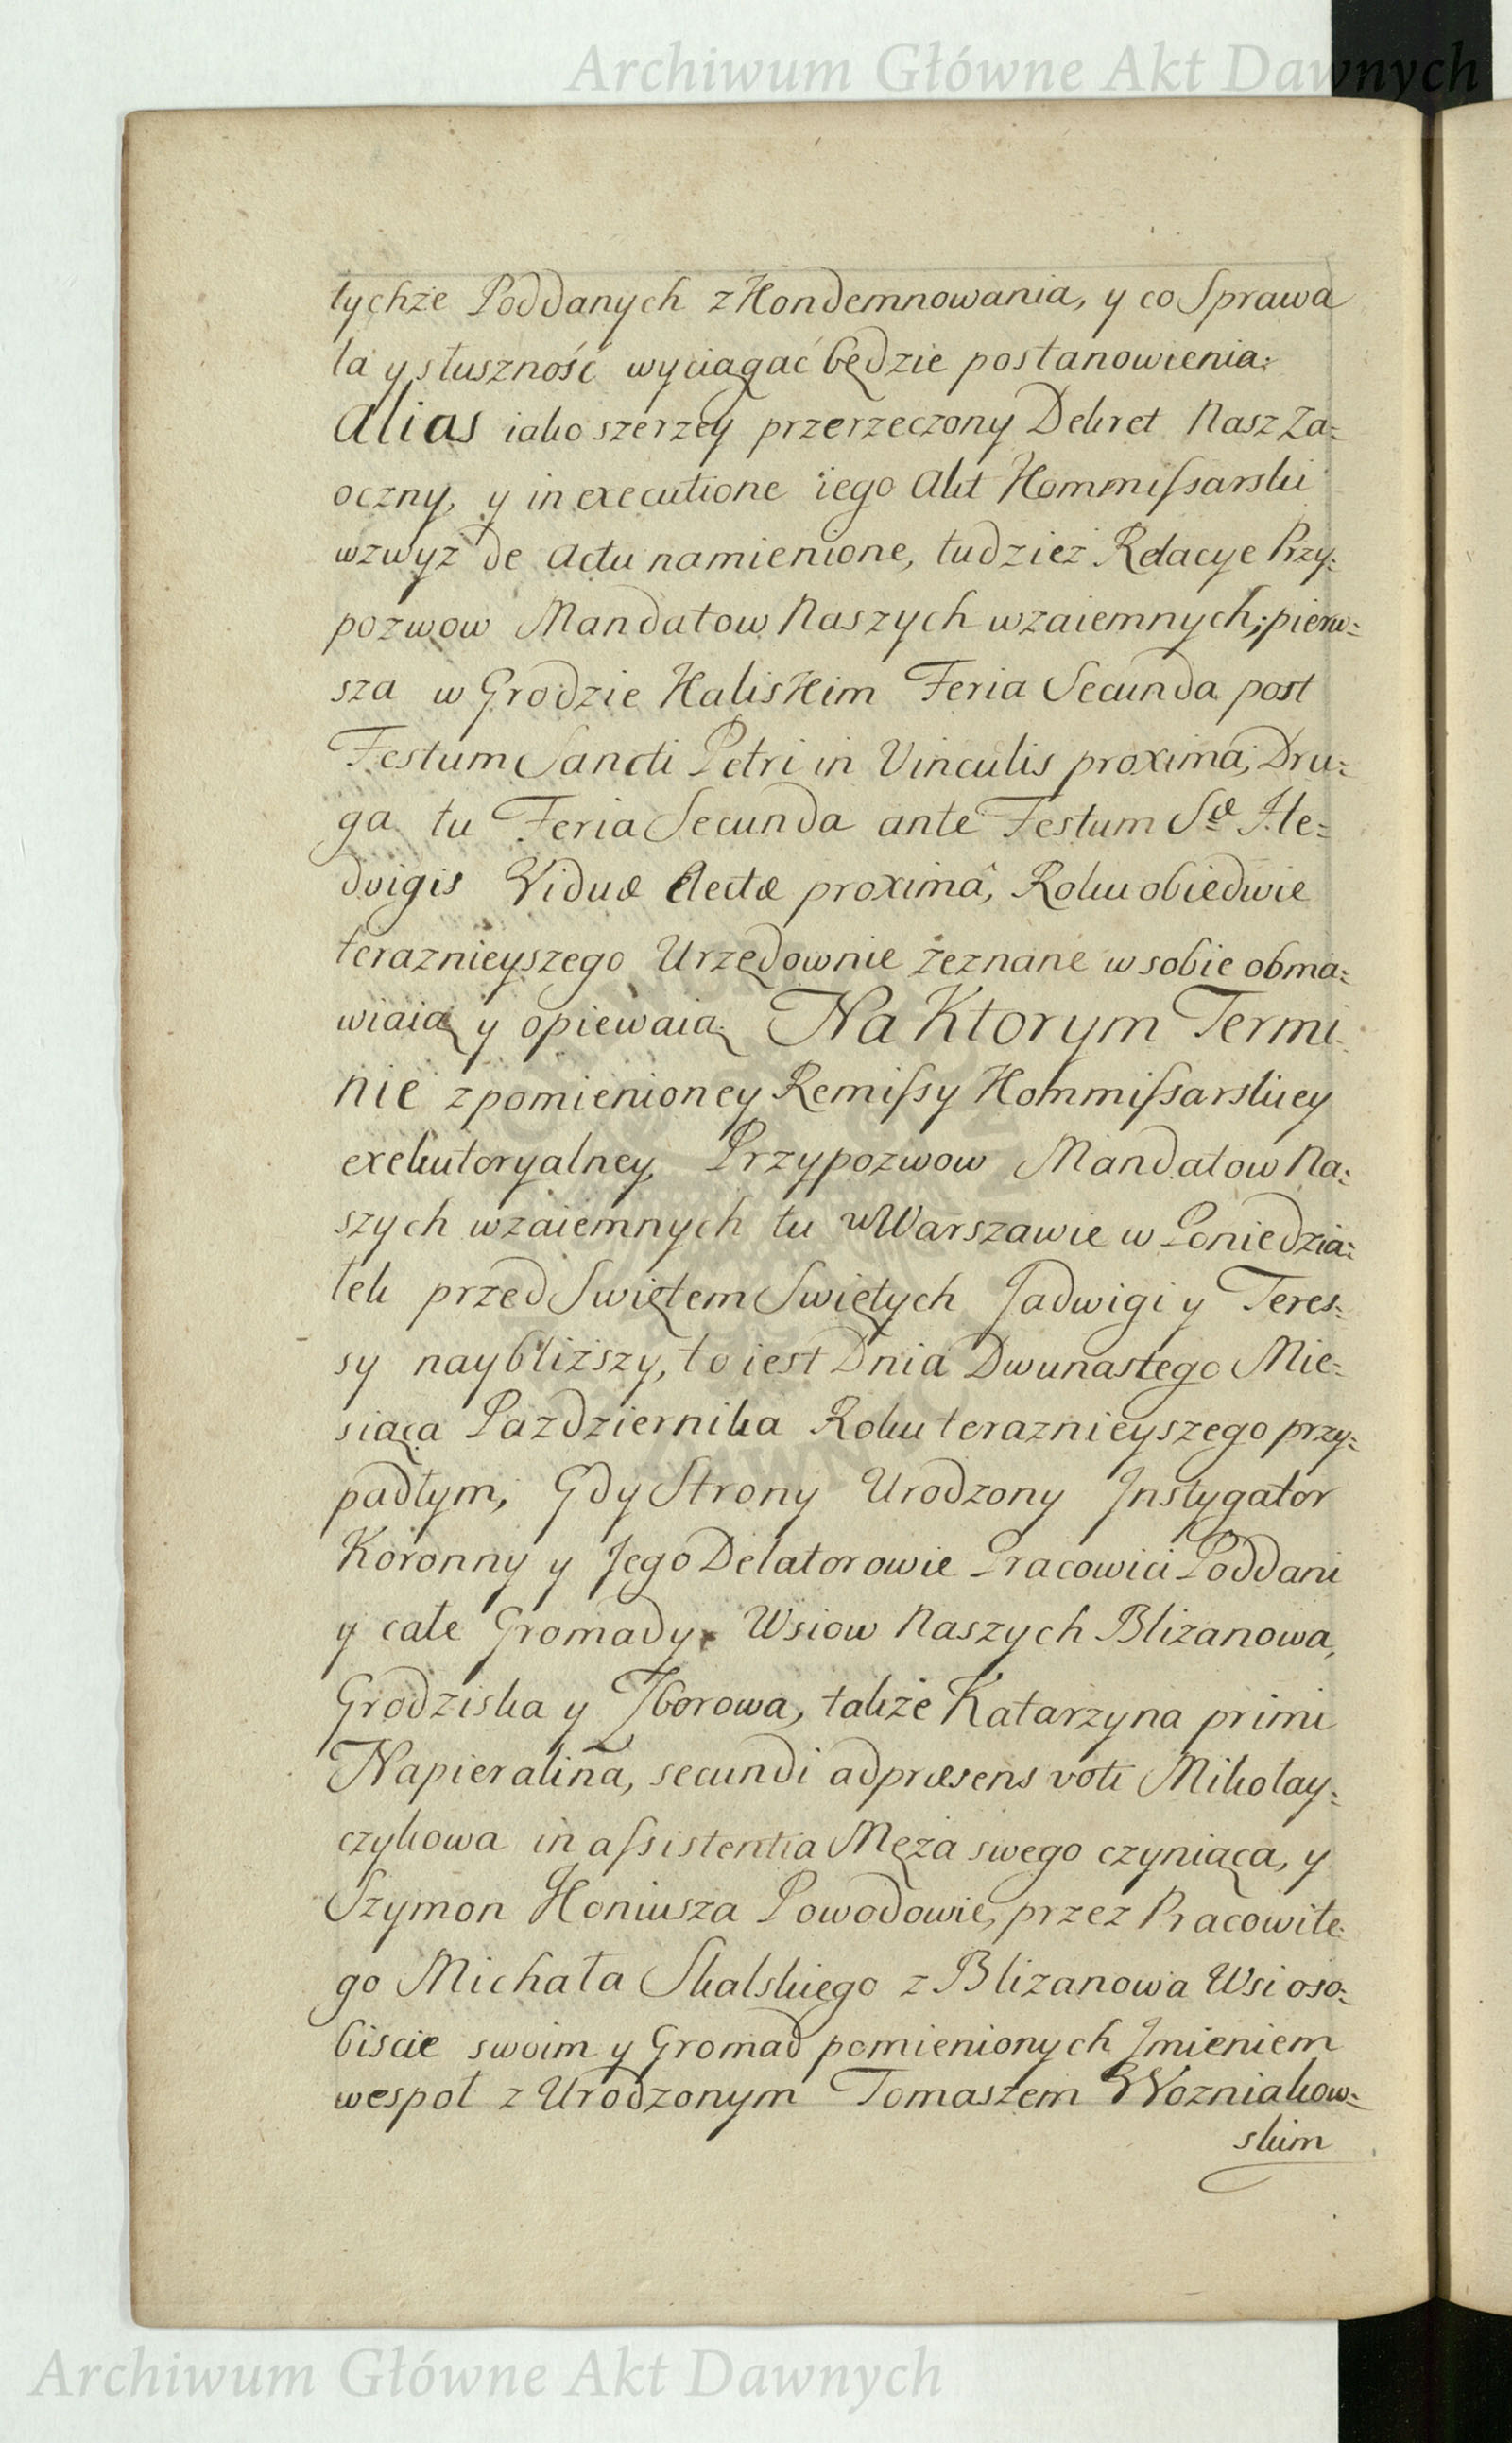 Archiwum Główne Akt Dawnych
tychże Poddanych z Kondemnowania, y co Sprawa
ta y słuszność wyciągać będzie postanowienia.
Alias iako szerzey przerzeczony Dekret Nasz Za=
oczny, y in executione iego Akt Kommissarski
wzwyż de Actu namienione, tudzież Relacye Przy=
pozwow Mandatow Naszych wzaiemnych; pierw=
sza w Grodzie Kaliskim Feria Secunda post
Festum Sancti Petri in Vinculis proxima, Dru=
ga tu Feria Secunda ante Festum Sæ He=
dvigis Viduæ Electæ proximâ, Roku obiedwie
teraznieyszego Urzędownie zeznane w sobie obma=
wiaią y opiewaią. Na Ktorym Termi=
nie z pomienioney Remissy Kommissarskiey
exekutoryalney, Przypozwow Mandatow Na=
szych wzaiemnych tu w Warszawie w Poniedzia=
łek przed Swiętem Swiętych Jadwigi y Teres=
sy naybliższy, to iest Dnia Dwunastego Mie=
siąca Pazdziernika Roku teraznieyszego przy=
padłym, Gdy Strony Urodzony Instygator
Koronny y Jego Delatorowie Pracowici Poddani
y całe Gromady Wsiow Naszych Blizanowa,
Grodziska y Zborowa, także Katarzyna primi
Napieralina, secundi ad præsens voti Mikołay=
czykowa in assistentia Męża swego czyniąca, y
Szymon Koniusza Powodowie, przez Pracowite=
go Michała Skalskiego z Blizanowa Wsi oso=
biscie swoim y Gromad pomienionych Imieniem
wespoł z Urodzonym Tomaszem Wozniakow=
skim
Archiwum Główne Akt Dawnych